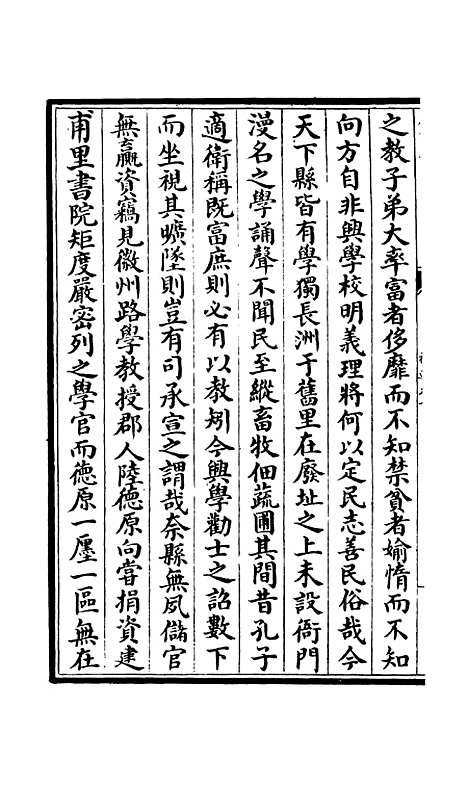 之教子弟大率富者侈靡而不知禁貧者媮惰而不知
向方自非興學校明義理將何以定民志善民俗哉今
天下縣皆有學獨長洲于舊里在廢址之上未設衙門
漫名之學誦聲不聞民至縱畜牧佃蔬圃其間昔孔子
適衛稱既富庶則必有以教矧今興學勸士之詔數下
而坐視其曠墜則豈有司承宣之謂哉奈縣無夙儲官
無贏資竊見徽州路學教授郡人陸德原向嘗捐資建
甫里書院矩度嚴密列之學官而德原一廛一區無在